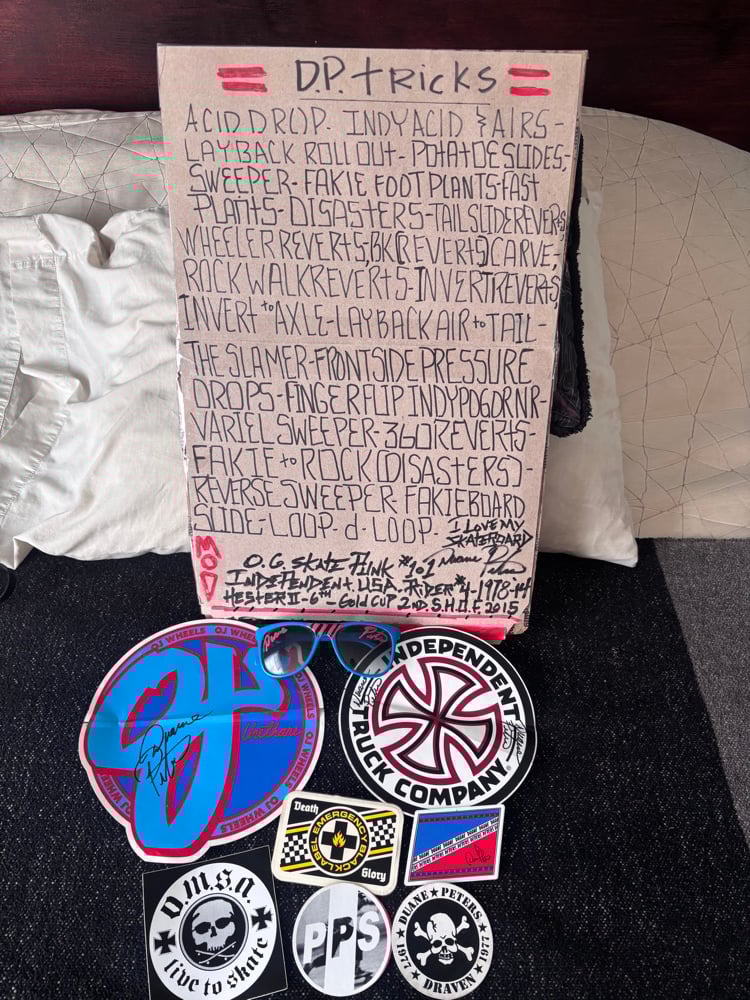 D.P. tricks
ACID DROP. INDY ACID & AIRS-
LAYBACK ROLL OUT- POTATOE SLIDES-
SWEEPER- FAKIE FOOT PLANTS-FAST
PLANTS- DISASTERS-TAILSLIDE REVERTS,
WHEELER REVERTS, BK(REVERTS)CARVE,
ROCK WALK REVERTS-INVERT REVERTS,
INVERT to AXLE-LAYBACK AIR to TAIL-
THE SLAMER-FRONTSIDE PRESSURE
DROPS-FINGERFLIP INDYPOGORNR-
VARIEL SWEEPER-360 REVERTS-
FAKIE to ROCK(DISASTERS)-
REVERSE SWEEPER FAKIE BOARD
SLIDE-LOOP-d-LOOP-
I LOVE MY
SKATEBOARD
MOD
O.G. SKATE PUNK #101 Duane Peters
INDEPENDENT. U.S.A. RIDER #4-1978-14
HESTER II-6TH-GOLD CUP 2ND S.H.O.F. 2015
Duane Peters
OJ WHEELS OJ WHEELS OJ WHEELS OJ WHEELS
OJ
Urethane
Duane Peters
INDEPENDENT
TRUCK COMPANY
Duane Peters
Duane Peters
Death
EMERGENCY
BLACK LABEL
Glory
D.M.S.A.
live to skate
PPS
DUANE ★ PETERS
1977 1977
DRAVEN